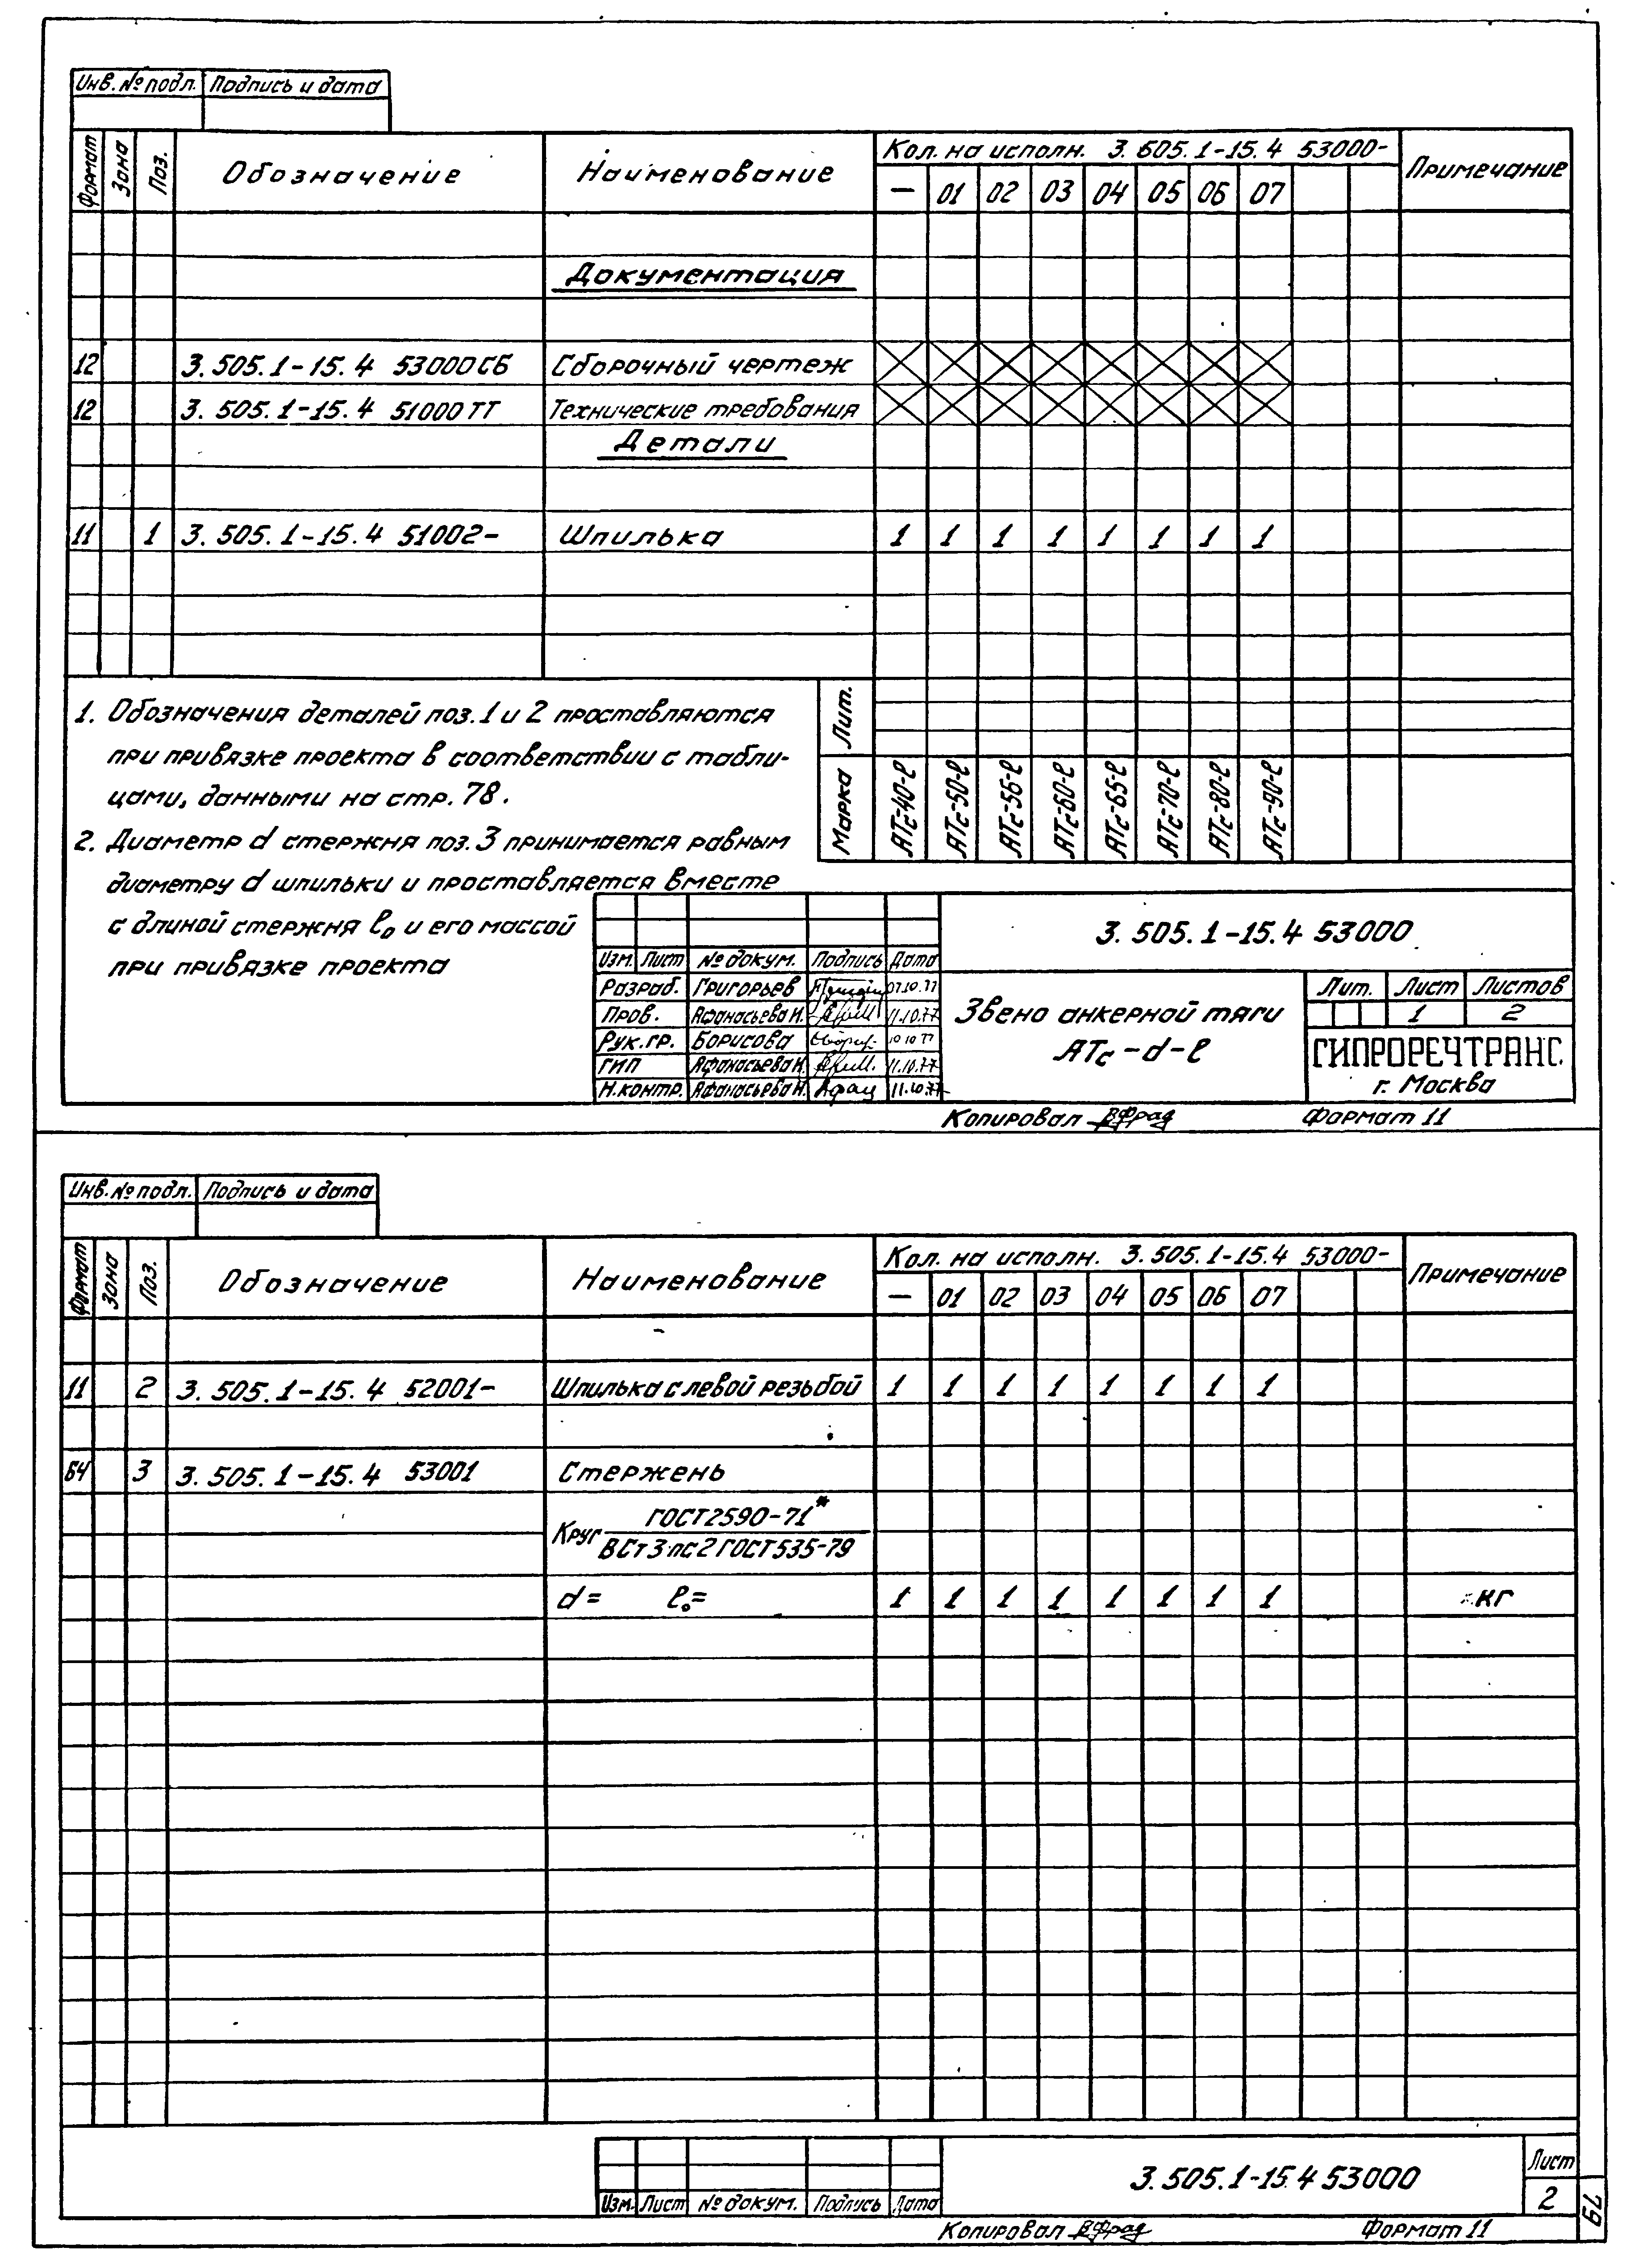 Инв. № подл. Подпись и дата
Формат Зона Поз. Обозначение Наименование Кол. на исполн. 3.505.1-15.4 53000- Примечание
— 01 02 03 04 05 06 07
Документация
12 3.505.1-15.4 53000СБ Сборочный чертеж
12 3.505.1-15.4 51000ТТ Технические требования
Детали
11 1 3.505.1-15.4 51002- Шпилька 1 1 1 1 1 1 1 1
Лит.
Марка АТс-40-ℓ АТс-50-ℓ АТс-56-ℓ АТс-60-ℓ АТс-65-ℓ АТс-70-ℓ АТс-80-ℓ АТс-90-ℓ
1. Обозначения деталей поз. 1 и 2 проставляются
при привязке проекта в соответствии с табли-
цами, данными на стр. 78.
2. Диаметр d стержня поз. 3 принимается равным
диаметру d шпильки и проставляется вместе
с длиной стержня ℓ₀ и его массой
при привязке проекта
3.505.1-15.4 53000
Изм. Лист № докум. Подпись Дата
Разраб. Григорьев 07.10.77
Пров. Афанасьева Н. 11.10.77
Рук. гр. Борисова 10 10 77
ГИП Афанасьева Н. 11.10.77
Н.контр. Афанасьева Н. 11.10.77
Звено анкерной тяги
АТс-d-ℓ
Лит. Лист Листов
1 2
ГИПРОРЕЧТРАНС.
г. Москва
Копировал Формат 11
Инв. № подл. Подпись и дата
Формат Зона Поз. Обозначение Наименование Кол. на исполн. 3.505.1-15.4 53000- Примечание
— 01 02 03 04 05 06 07
11 2 3.505.1-15.4 52001- Шпилька с левой резьбой 1 1 1 1 1 1 1 1
БЧ 3 3.505.1-15.4 53001 Стержень
Круг ГОСТ 2590-71*
ВСт3пс2 ГОСТ 535-79
d= ℓ₀= 1 1 1 1 1 1 1 1 кг
3.505.1-15.4 53000
Лист
2
Изм. Лист № докум. Подпись Дата
Копировал Формат 11
79